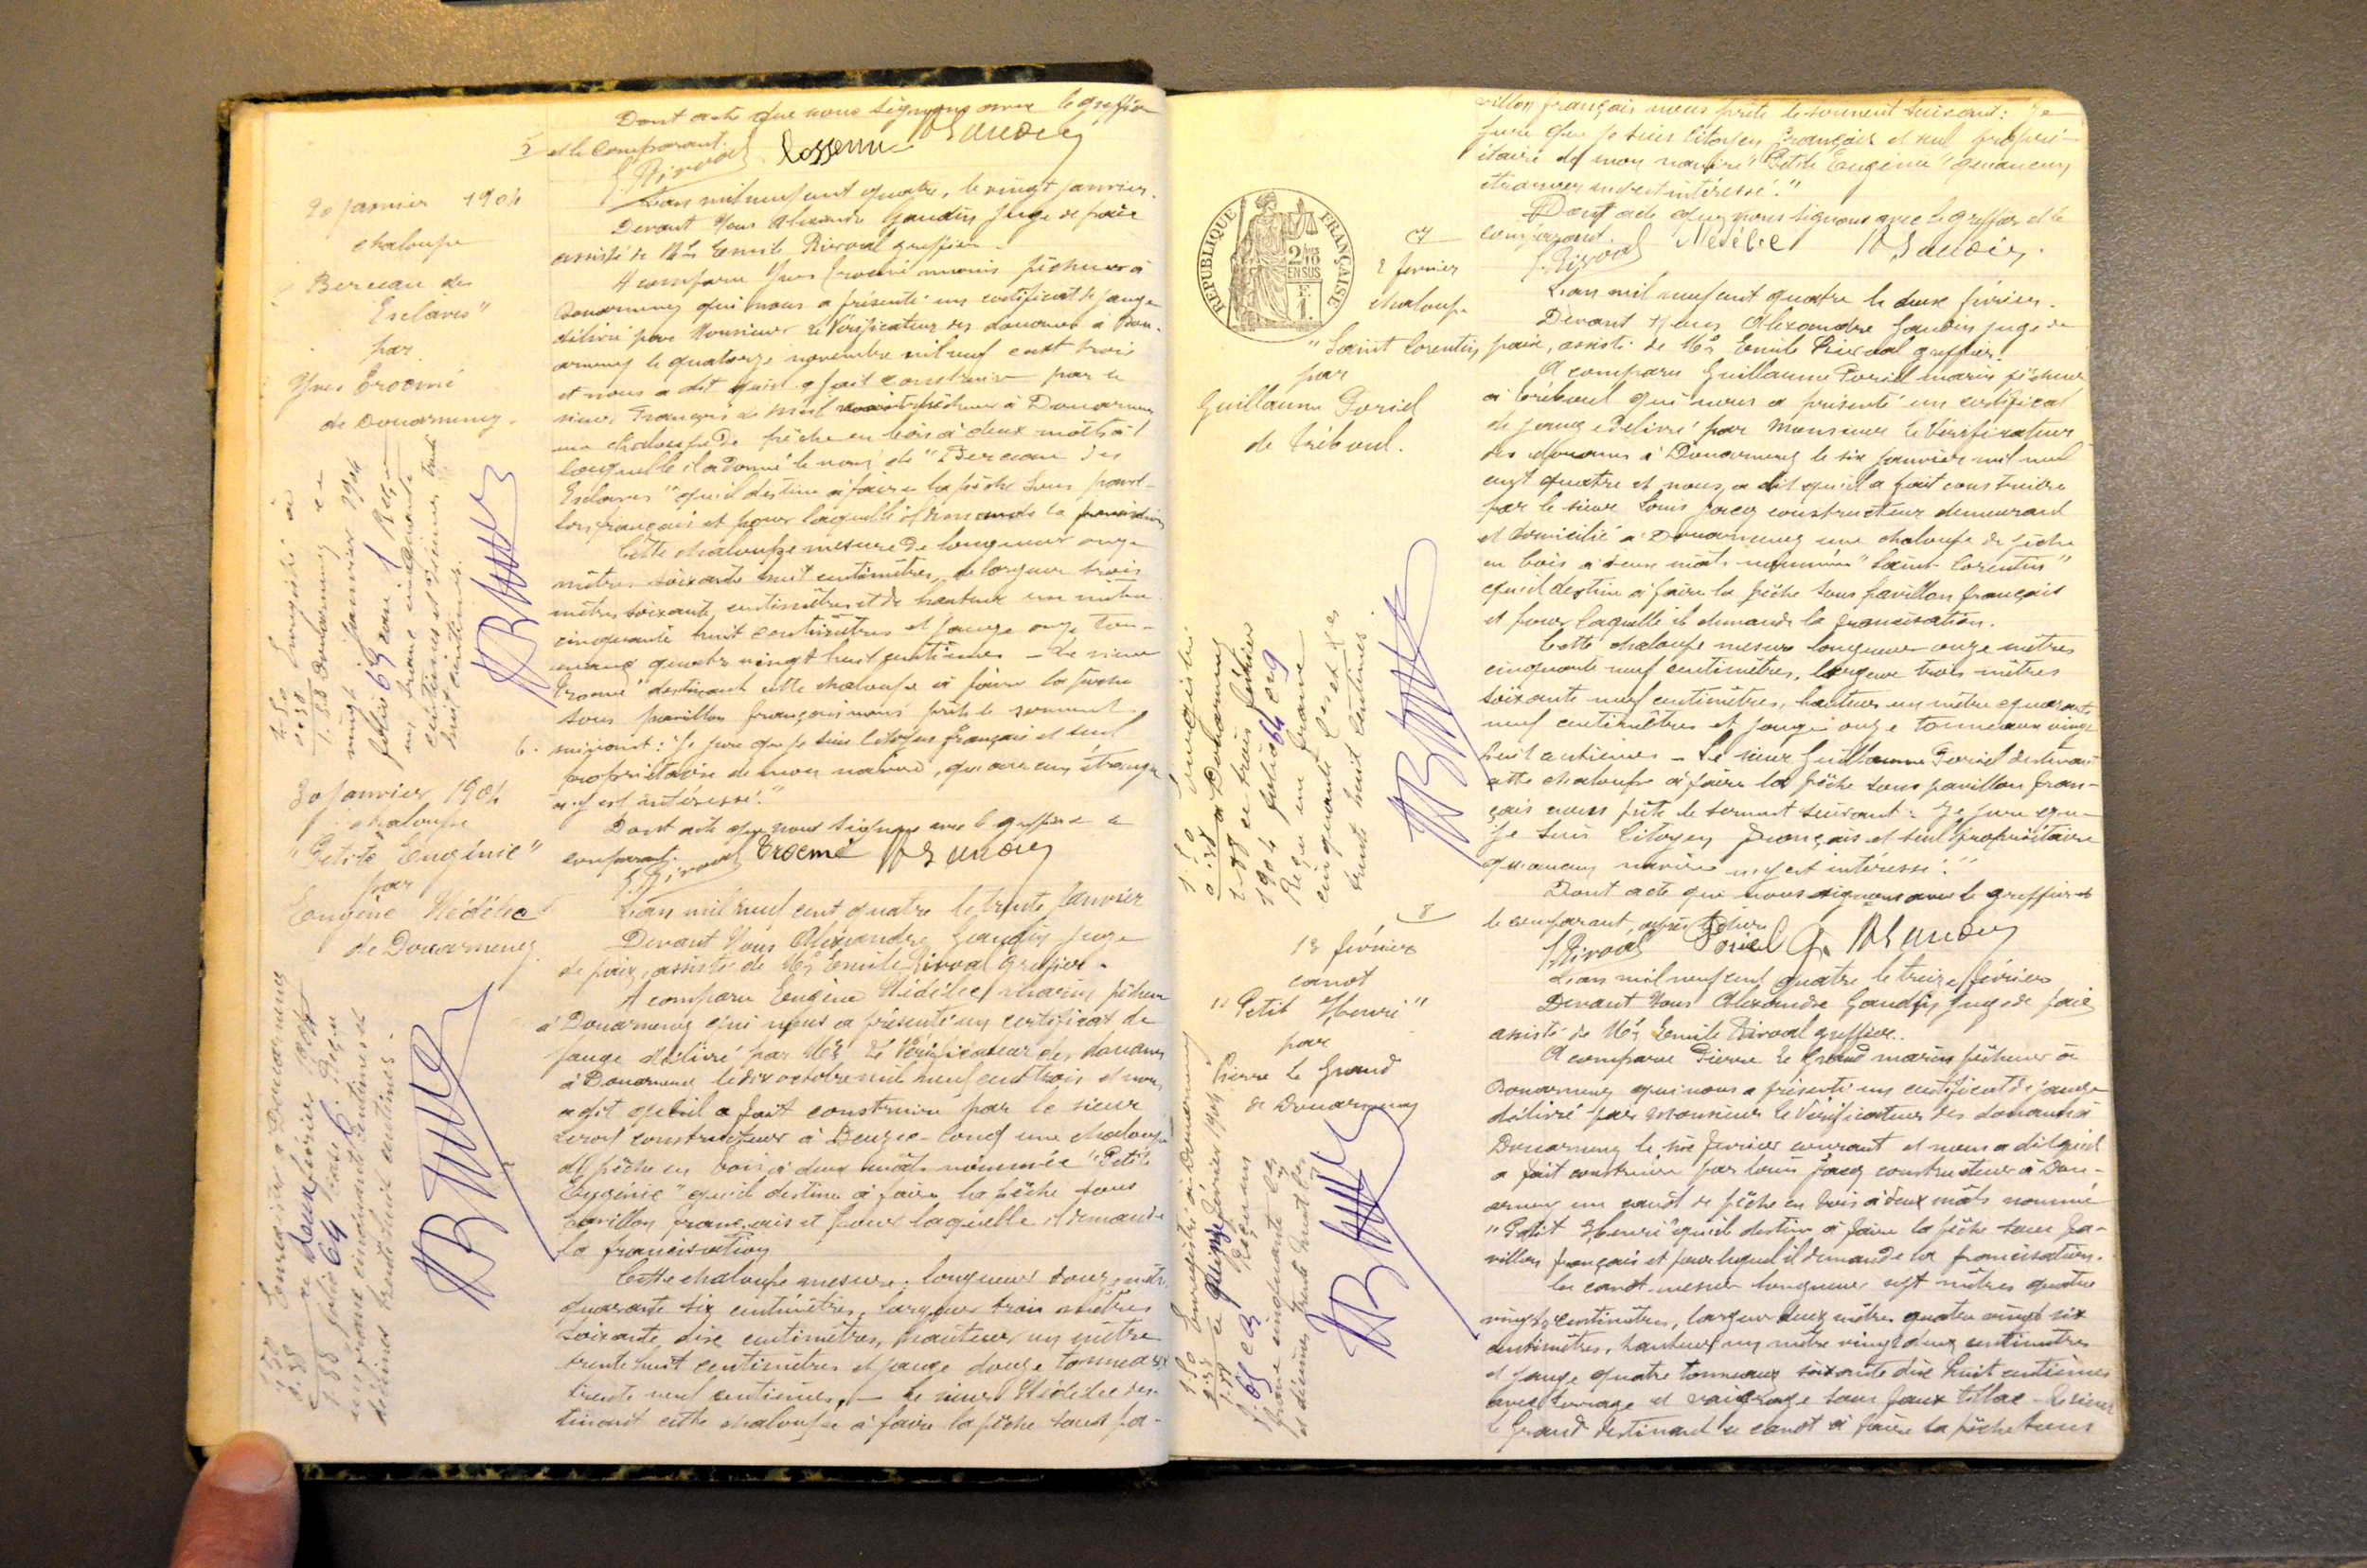 Dont acte que nous signons avec le greffier
5 et le comparant.
20 janvier 1904
chaloupe
Berceau des
Esclaves"
par
Yves Crocmé
de Douarnenez.
L'an mil neuf cent quatre, le vingt janvier.
Devant Nous Alexandre Gaudin Juge de paix
assisté de Me Emile Rivoal greffier.
A comparu Yves Crocmé marin pêcheur à
Douarnenez qui nous a présenté un certificat de jauge
délivré par Monsieur le Vérificateur des douanes à Dou-
arnenez le quatorze novembre mil neuf cent trois
et nous a dit qu'il a fait construire par le
sieur François à Douarnenez
une chaloupe de pêche en bois à deux mâts à
laquelle il a donné le nom de "Berceau des
Esclaves" qu'il destine à faire la pêche sous pavil-
lon français et pour laquelle il demande la francisation
Cette chaloupe mesure de longueur onze
mètres soixante huit centimètres, de largeur trois
mètres soixante centimètres et de hauteur un mètre
cinquante huit centimètres et jauge onze ton-
neaux quatre vingt huit centièmes - Le sieur
Crocmé destinant cette chaloupe à faire la pêche
sous pavillon français nous prête le serment
suivant: "Je jure que je suis citoyen français et seul
propriétaire de mon navire, qu'aucun étranger
n'y est intéressé."
Dont acte que nous signons avec le greffier et le
comparant.
E. Rivoal Crocmé A Gaudin
1.50 Enregistré à
0.38
1.88 Douarnenez le
vingt janvier 1904
folio 63 case 1 Reçu
un franc cinquante
centimes et décimes trente
huit centimes.
6.
30 janvier 1904
chaloupe
"Petite Eugénie"
par
Eugène Nédélec
de Douarnenez.
L'an mil neuf cent quatre le trente Janvier
Devant Nous Alexandre Gaudin Juge
de paix, assisté de Me Emile Rivoal Greffier.
A comparu Eugène Nédélec, marin pêcheur
à Douarnenez qui nous a présenté un certificat de
jauge délivré par Mr le Vérificateur des douanes
à Douarnenez le dix octobre mil neuf cent trois et nous
a dit qu'il a fait construire par le sieur
constructeur à Beuzec-Conq une chaloupe
de pêche en bois à deux mâts nommée "Petite
Eugénie" qu'il destine à faire la pêche sous
pavillon français et pour laquelle il demande
la francisation
Cette chaloupe mesure: longueur douze mètres
quarante six centimètres, largeur trois mètres
soixante dix centimètres, hauteur un mètre
trente huit centimètres et jauge douze tonneaux
trente neuf centièmes, - Le sieur Nédélec des-
tinant cette chaloupe à faire la pêche sous pa-
1.50 Enregistré à Douarnenez
0.38 le deux février 1904
1.88 folio 64 case 6. Reçu
un franc cinquante centimes et
décimes trente huit centimes.
villon français nous prête le serment suivant: Je
jure que je suis citoyen français et seul propri-
étaire de mon navire "Petite Eugénie" qu'aucun
étranger n'y est intéressé."
Dont acte que nous signons avec le greffier et le
comparant.
E. Rivoal Nédélec A Gaudin.
RÉPUBLIQUE FRANÇAISE
2/10
EN SUS
F.
1.
7
2 février
chaloupe
"Saint Corentin
par
Guillaume Poriel
de Tréboul.
L'an mil neuf cent quatre le deux février.
Devant Nous Alexandre Gaudin juge de
paix, assisté de Me Emile Rivoal greffier.
A comparu Guillaume Poriel marin pêcheur
à Tréboul qui nous a présenté un certificat
de jauge délivré par Monsieur le Vérificateur
des douanes à Douarnenez le six janvier mil neuf
cent quatre et nous a dit qu'il a fait construire
par le sieur Louis Jacq constructeur demeurant
et domicilié à Douarnenez une chaloupe de pêche
en bois à deux mâts nommée "Saint Corentin"
qu'il destine à faire la pêche sous pavillon français
et pour laquelle il demande la francisation.
Cette chaloupe mesure longueur onze mètres
cinquante neuf centimètres, largeur trois mètres
soixante neuf centimètres, hauteur un mètre quarante
neuf centimètres et jauge onze tonneaux vingt
huit centièmes - Le sieur Guillaume Poriel destinant
cette chaloupe à faire la pêche sous pavillon fran-
çais nous prête le serment suivant: "Je jure que
Je suis Citoyen français et seul propriétaire
qu'aucun navire n'y est intéressé."
Dont acte que nous signons avec le greffier et
le comparant, après lecture
E Rivoal Poriel G. A Gaudin
1.50 Enregistré
0.38 à Douarnenez
1.88 le trois février
1904 folio 64 c 9
Reçu un franc
cinquante c. es
trente huit centimes
8
13 février
canot
"Petit Henri"
par
Pierre Le Grand
de Douarnenez
L'an mil neuf cent quatre le treize février
Devant Nous Alexandre Gaudin Juge de paix
assisté de Me Emile Rivoal greffier.
A comparu Pierre Le Grand marin pêcheur à
Douarnenez qui nous a présenté un certificat de jauge
délivré par Monsieur le Vérificateur des douanes à
Douarnenez le six février courant et nous a dit qu'il
a fait construire par Louis Jacq constructeur à Dou-
arnenez un canot de pêche en bois à deux mâts nommé
"Petit Henri" qu'il destine à faire la pêche sous pa-
villon français et pour lequel il demande la francisation.
Ce canot mesure longueur sept mètres quatre
vingts centimètres, largeur deux mètres quatre vingt six
centimètres, hauteur un mètre vingt deux centimètres
et jauge quatre tonneaux soixante dix huit centièmes
avec et vaigrage sous faux tillac - Le sieur
Le Grand destinant ce canot à faire la pêche sous
1.50 Enregistré à Douarnenez
0.38 le quinze février 1904
1.88
f. 65 c 3 Reçu un
franc cinquante c.es
et décimes trente huit c.es